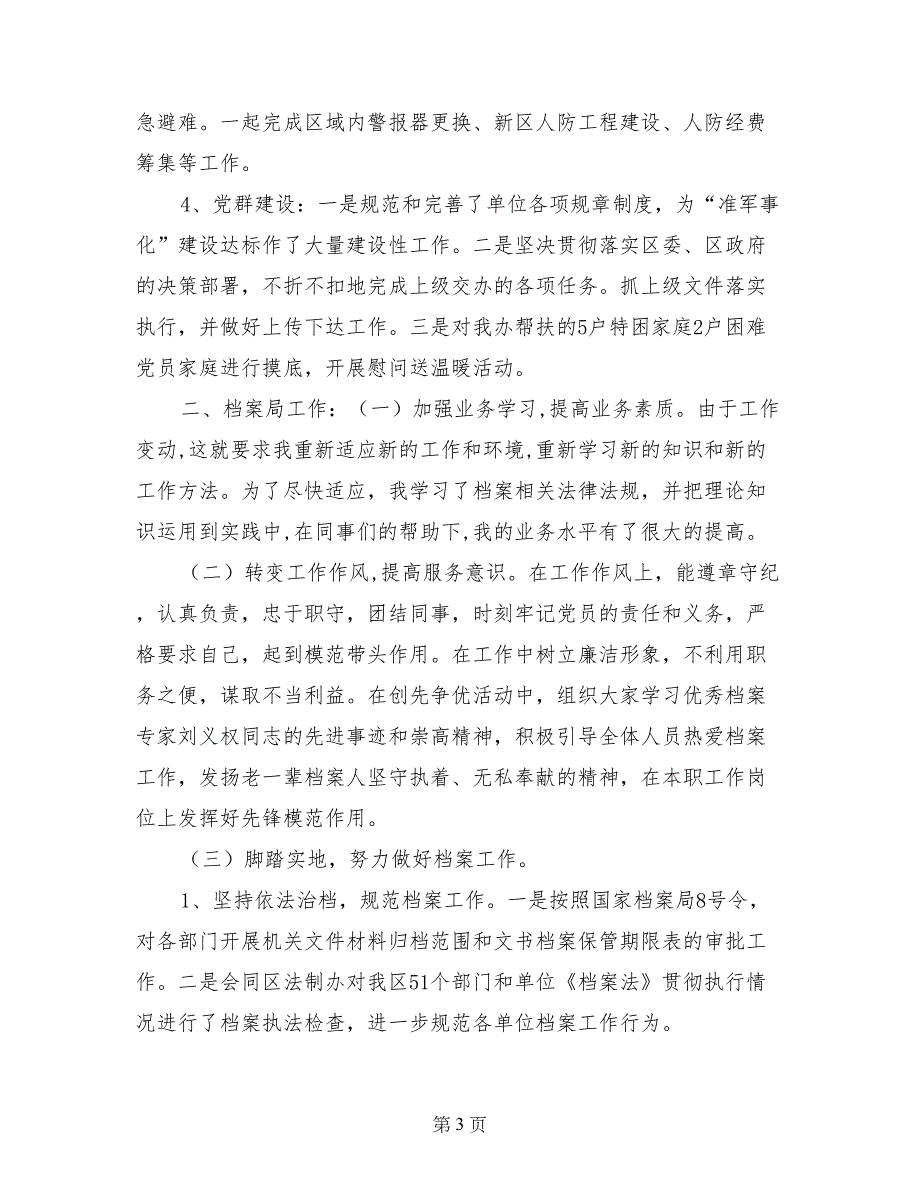 急避难。一起完成区域内警报器更换、新区人防工程建设、人防经费
筹集等工作。
4、党群建设：一是规范和完善了单位各项规章制度，为“准军事
化”建设达标作了大量建设性工作。二是坚决贯彻落实区委、区政府
的决策部署，不折不扣地完成上级交办的各项任务。抓上级文件落实
执行，并做好上传下达工作。三是对我办帮扶的5户特困家庭2户困难
党员家庭进行摸底，开展慰问送温暖活动。
二、档案局工作：（一）加强业务学习,提高业务素质。由于工作
变动,这就要求我重新适应新的工作和环境,重新学习新的知识和新的
工作方法。为了尽快适应，我学习了档案相关法律法规，并把理论知
识运用到实践中,在同事们的帮助下,我的业务水平有了很大的提高。
（二）转变工作作风,提高服务意识。在工作作风上，能遵章守纪
，认真负责，忠于职守，团结同事，时刻牢记党员的责任和义务，严
格要求自己，起到模范带头作用。在工作中树立廉洁形象，不利用职
务之便，谋取不当利益。在创先争优活动中，组织大家学习优秀档案
专家刘义权同志的先进事迹和崇高精神，积极引导全体人员热爱档案
工作，发扬老一辈档案人坚守执着、无私奉献的精神，在本职工作岗
位上发挥好先锋模范作用。
（三）脚踏实地，努力做好档案工作。
1、坚持依法治档，规范档案工作。一是按照国家档案局8号令，
对各部门开展机关文件材料归档范围和文书档案保管期限表的审批工
作。二是会同区法制办对我区51个部门和单位《档案法》贯彻执行情
况进行了档案执法检查，进一步规范各单位档案工作行为。
第 3 页